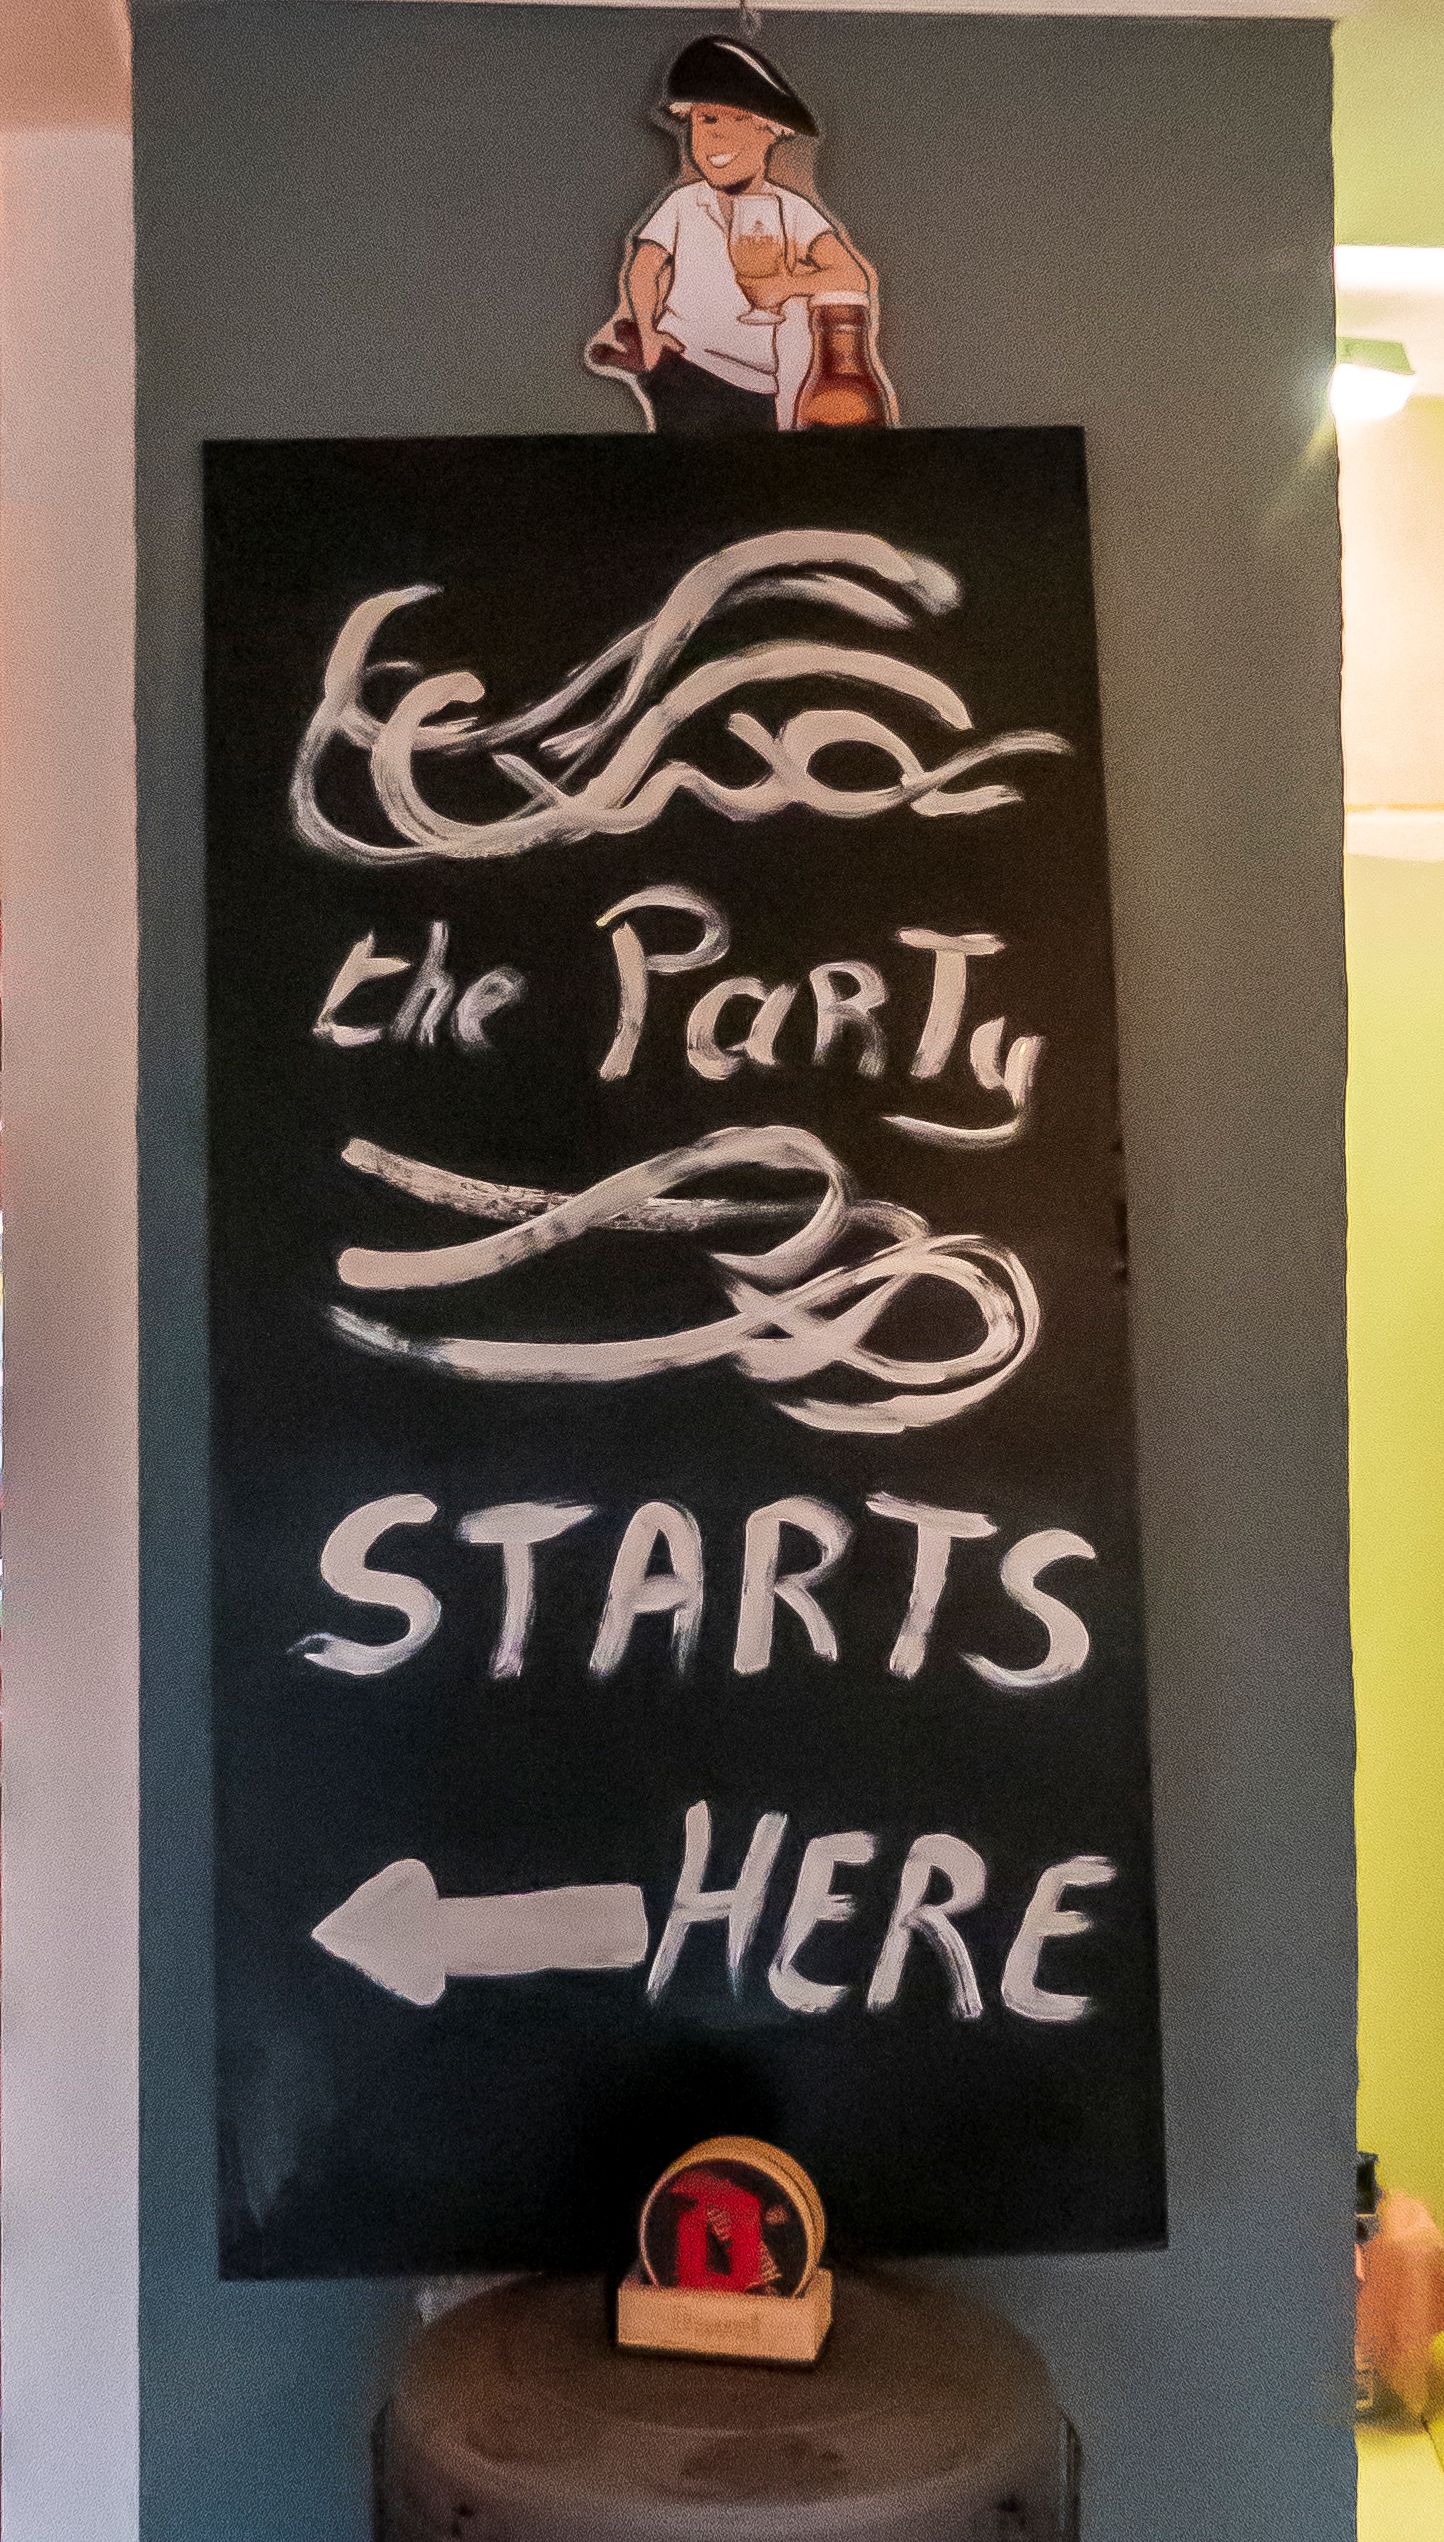 the Party
STARTS
HERE